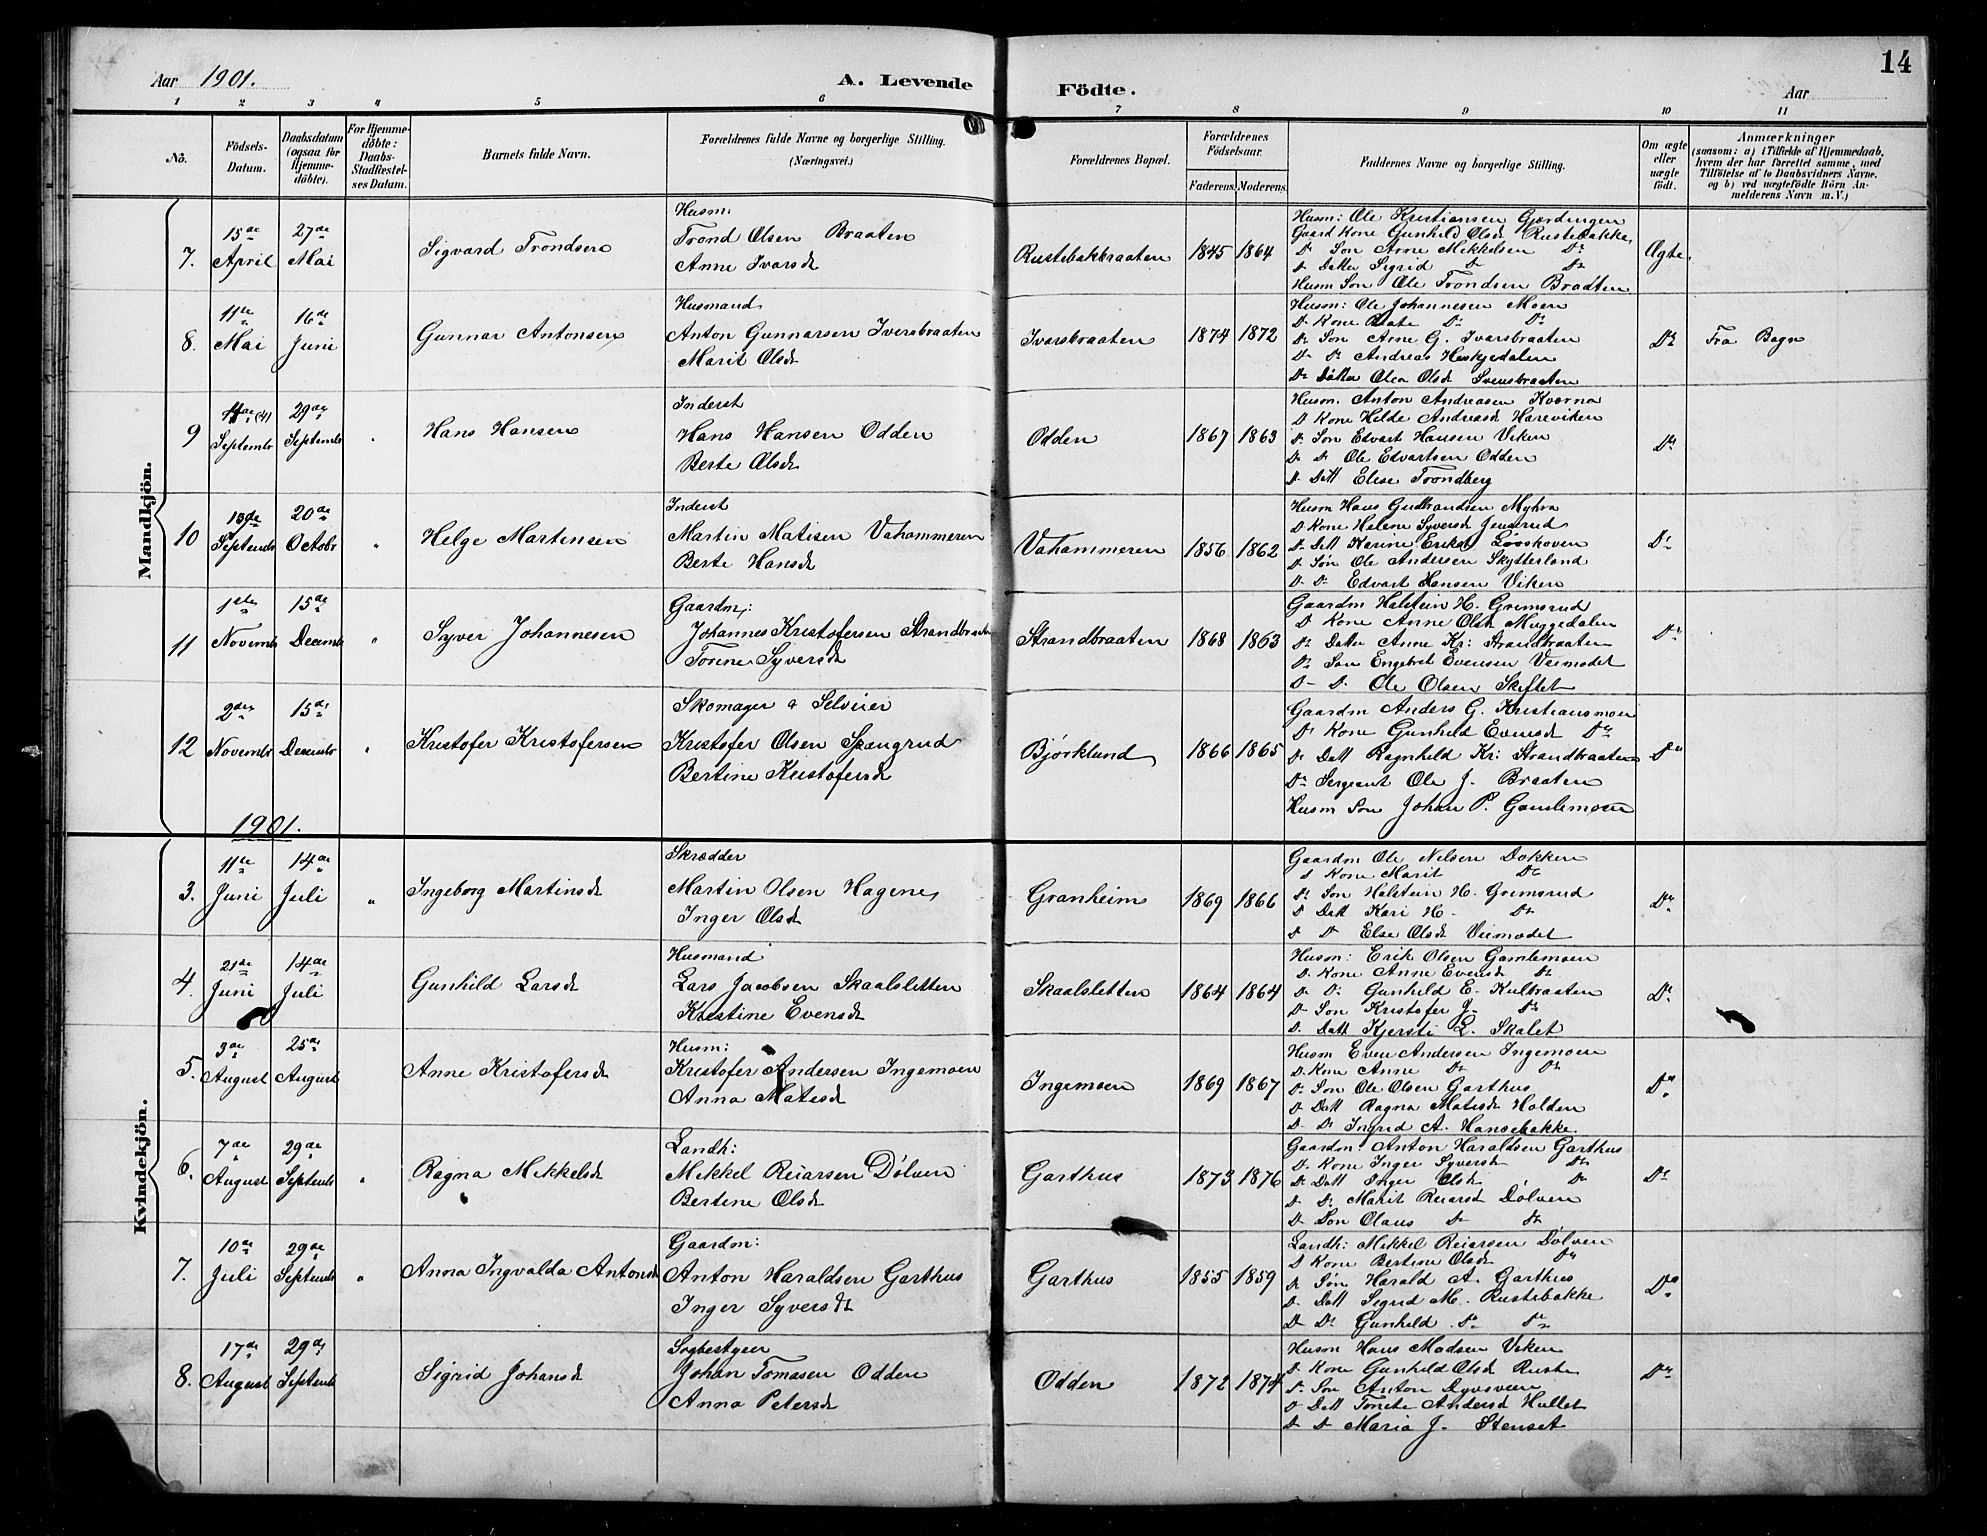 14
Aar 1901. A. Levende Födte. Aar
1 2 3 4 5 6 7 8 9 10 11
No. Födsels-Datum. Daabsdatum (ogsaa for Hjemme-döbte). For Hjemme-döbte: Daabs-Stadfæstel-ses Datum. Barnets fulde Navn. Forældrenes fulde Navne og borgerlige Stilling. (Næringsvei.) Forældrenes Bopæl. Forældrenes Födselsaar. Faderens. Moderens. Faddernes Navne og borgerlige Stilling. Om ægte eller uægte födt. Anmærkninger (saasom: a) i Tilfælde af Hjemmedaab, hvem der har forrettet samme, med Tilföielse af to Daabsvidners Navne. og b) ved uægtefödte Börn An-melderens Navn m. V.)
Mandkjön.
7. 15de April 27de Mai Sigvard Trondsen
Husm:
Trond Olsen Braaten
Anne Ivarsd
Rustebakbraaten 1845 1864
Husm: Ole Kristiansen Gjerdingen
Gaard Kone Gunhild Olsd Rustebakke
Dr Søn Arne Mikkelsen Dr
Dr Datter Sigrid Dr Dr
Husm Søn Ole Trondsen Braaten
Ægte.
8. 11te Mai 16de Juni Gunnar Antonsen
Husmand
Anton Gunnarsen Iversbraaten
Marit Olsd
Ivarsbraaten 1874 1872
Husm: Ole Johannesen Moen
Dr Kone Beate Dr Dr
Dr Søn Arne G. Ivarsbraaten
Dr Dr Andreas Heskjedalen
Dr Datter Olea Olsd Svensbraaten
Do Fra Bagn
9 4de (4) Septembr 29de Septembr " Hans Hansen
Inderst
Hans Hansen Odden
Berte Olsd
Odden 1867 1863
Husm. Anton Andreasen Kværna
Dr Kone Helde Andreasd Hareviken
Dr Søn Edvart Hansen Viken
Dr Dr Ole Edvartsen Odden
Dr Datt Elise Trondberg
Do
10 13de Septembr 20de Octobr " Helge Martinsen
Inderst
Martin Matisen Vahammeren
Berte Hansd
Vahammeren 1856 1862
Husm Hans Gudbrandsen Myhra
D Kone Helene Syversd Jenserud
Dr Datt Karine Eriksd Løvshoven
Dr Søn Ole Andersen Skytterland
Dr Dr Edvart Hansen Viken
Do
11 1ste Novembr 15de Decembr " Syver Johannesen
Gaardm:
Johannes Kristofersen Strandbraaten
Torine Syversd
Strandbraaten 1868 1863
Gaardm Halstein H. Grimsrud
D Kone Anne Olsd Muggedalen
Dr Datter Anne Kr: Strandbraaten
Dr Søn Engebret Evensen Veimodet
D- D. Ole Olsen Skiftet
Do
12 2den Novembr 15de Decembr " Kristofer Kristofersen
Skomager & Selveier
Kristofer Olsen Spangrud
Bertine Kristofersd
Bjørklund 1866 1865
Gaardm Anders G. Kristiansmoen
Dr Kone Gunhild Evensd Do
Dr Datt Ragnhild Kr: Strandbraaten
Dr Sergeant Ole J. Braaten
Husm Søn Johan P. Gamlemoen
Do
1901.
Kvindekjön.
3. 11te Juni 14de Juli " Ingeborg Martinsd
Skrædder
Martin Olsen Hagene
Inger Olsd
Granheim 1869 1866
Gaardm Ole Nelsen Dokken
D Kone Marit Dr
Dr Søn Halstein H. Grimsrud
D Datt Kari H. Dr
D Dr Else Olsd Veimodet
Do
4. 21de Juni 14de Juli Gunhild Larsd
Husmand
Lars Jacobsen Skaalsletten
Kristine Evensd
Skaalsletten 1864 1864
Husm: Erik Olsen Gamlemoen
D. Kone Anne Evensd Dr
Dr Dr Gunhild E. Kulbraaten
Dr Søn Kristofer J. Dr
D. Datt Kjersti L. Skalet
Do
5. 3de August 25de August Anne Kristofersd
Husm:
Kristofer Andersen Ingemoen
Anna Matisd
Ingemoen 1869 1867
Husm Even Andersen Ingemoen
D. Kone Anne Dr Dr
Dr Søn Ole Olsen Garthus
Dr Datt Ragna Matisd Holden
D. Dr Ingrid A. Hansebakke
Do
6. 7de August 29de Septembr " Ragna Mikkelsd
Landh:
Mikkel Reiarsen Dølven
Bertine Olsd
Garthus 1873 1876
Gaardm: Anton Haraldsen Garthus
D. Kone Inger Syversd Dr
Dr Datt Inger Olsd Dr
Dr Dr Marit Reiarsd Dølven
Dr Søn Olaus Dr Dr
Do
7. 10de Juli 29de Septembr " Anna Ingvalda Antonsd
Gaardm:
Anton Haraldsen Garthus
Inger Syversd
Garthus 1855 1859
Landh: Mikkel Reiarsen Dølven
D Kone Bertine Olsd Do
Dr Søn Harald A. Garthus
D. Datt Sigrid M. Rustebakke
D- Dr Gunhild Dr Dr
Do
8. 17de August 29de Septemb Sigrid Johansd
Sagbestyrer
Johan Tomasen Odden
Anna Petersd
Odden 1872 1874
Husm Hans Madsen Viken
D. Kone Gunhild Olsd Ruste
Dr Søn Anton Dyvsveen
D Datt Tonete Andersd Hullet
D D Maria J. Stenset
Do